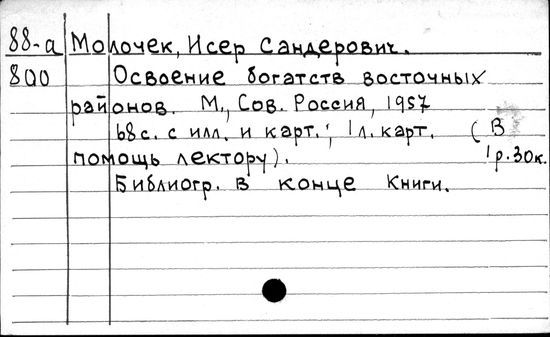 88-а Молочек, Исер Сандерович.
800 Освоение богатств восточных
районов. М., Сов. Россия, 1957
68с. с илл. и карт.; 1л. карт. (В
помощь лектору). 1р.30к.
Библиогр. в конце книги.